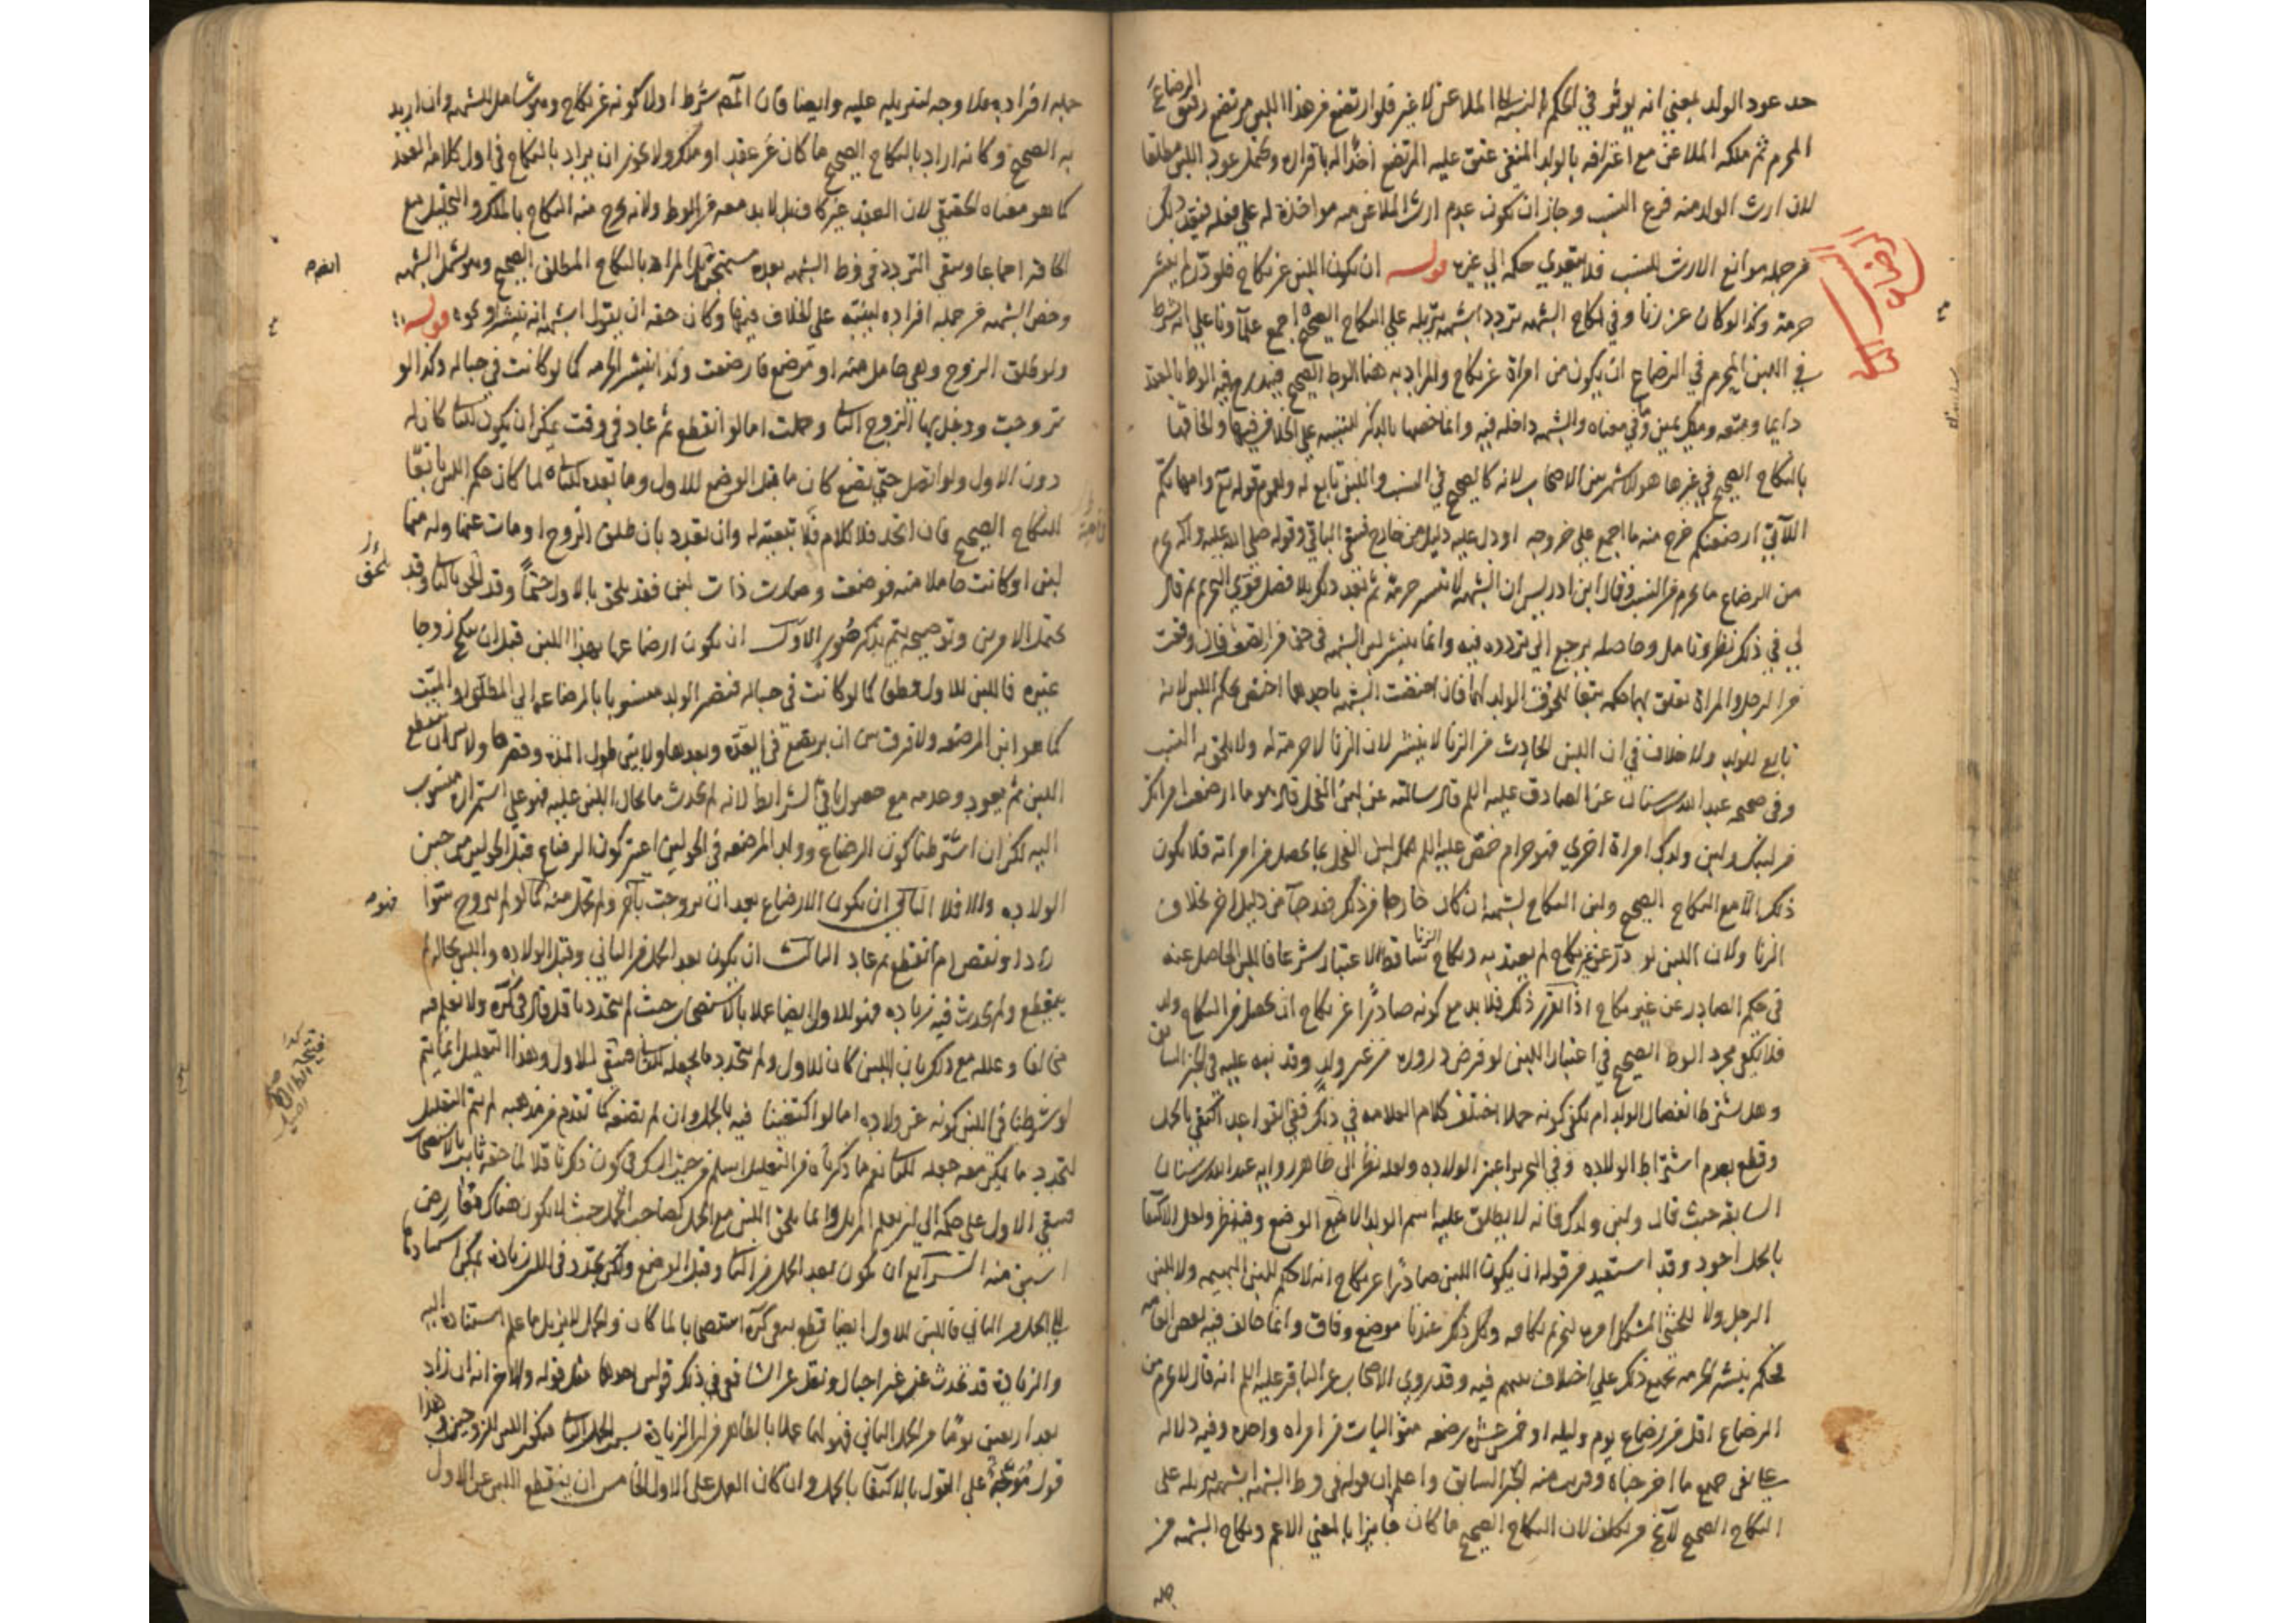 حد عود الولد بمعنى انه يوثر في الحكم بالنسبة الى الملاعن لا غير فلو ارتضع من هذا اللبن مرتضع رقيق الرضاع
المحرم ثم ملكه الملاعن مع اعترافه بالولد المنفي عتق عليه المرتضع اخذا له باقراره ويحتمل عود اللبن مطلقا
لان ارث الولد منه فرع النسب وجاز ان يكون عدم ارث الملاعن منه مواخذة له على فعله فيكون ذلك
من جمله موانع الارث للنسب فلا يتعدي حكمه الي غيره قوله ان يكون اللبن عن نكاح فلو در لم ينشر
حرمة وكذا لو كان عن زنا وفي نكاح الشبهه تردد اشبهه تنزيله علي النكاح الصحيح اجمع علماونا علي انه يشترط
في اللبن المحرم في الرضاع ان يكون من امراة عن نكاح والمراد به هنا الوطء الصحيح فيندرج فيه الوطء بالعقد
دايما ومتعه وملك يمين وما في معناه والشبهه داخله فيه وانما خصها بالذكر للتنبيه علي الخلاف فيها والحاقها
بالنكاح الصحيح في غيرها هو الاشهر بين الاصحاب لانه كالصحيح في النسب واللبن تابع له ولعموم قوله تع وامهاتكم
اللاتي ارضعنكم خرج منه ما اجمع علي خروجه او دل عليه دليل من خارج فيبقى الباقي وقوله صلي الله عليه واله يحرم
من الرضاع ما يحرم من النسب وقال ابن ادريس ان الشبهه لا تنشر حرمة ثم بعد ذلك بلا فصل قوي التحريم ثم قال
لي في ذلك نظر وتامل وحاصله يرجع الي تردده فيه وانما ينشر لبن الشبهه في حق من
من الرجل والمراة تعلق بهما حكمه تبعا للحوق الولد بهما فان اختصت الشبهه باحدهما اختص بحكم اللبن لانه
تابع للولد ولا خلاف في ان اللبن الحادث من الزنا لا ينشر لان الزنا لا حرمة له ولا يلحق به النسب
وفي صحيحه عبد الله بن سنان عن الصادق عليه السلم قال سالته عن لبن الفحل قال هو ما ارضعت امراتك
من لبنك ولبن ولدك امراة اخري فهو حرام خص عليه السلم لبن الفحل بما يحصل من امراته فلا يكون
ذلك الا مع النكاح الصحيح ولبن النكاح لشبهه ان كان خارجا من ذلك فقد جا من دليل اخر بخلاف
الزنا ولان اللبن لو در عن غير نكاح لم يعتد به ونكاح الزنا ساقط الاعتبار شرعا فاللبن الحاصل عنه
في حكم الصادر عن غير نكاح اذا تقرر ذلك فلابد مع كونه صادرا عن نكاح ان يحصل من النكاح ولد
فلا يكفي مجرد الوطء الصحيح في اعتبار اللبن لو فرض دروره من غير ولد وقد نبه عليه في الخبر السابق
وهل يشترط انفصال الولد ام يكفي كونه حملا اختلف كلام العلامه في ذلك ففي القواعد اكتفي بالحمل
وقطع بعدم اشتراط الولاده وفي التحرير اعتبر الولاده ولعله نظر الى ظاهر روايه عبد الله بن سنان
السابقه حيث قال ولبن ولدك فانه لا يطلق عليه اسم الولد الا مع الوضع وفيه نظر ولعل الاكتفا
بالحمل اجود وقد استفيد من قوله ان يكون اللبن صادرا عن نكاح انه لا حكم للبن البهيمه ولا للبن
الرجل ولا للخنثي المشكل امره لتحريم نكاحه وكل ذلك عندنا موضع وفاق وانما خالف فيه بعض العامه
فحكم بنشر الحرمه بجميع ذلك علي اختلاف بينهم فيه وقد روي الاصحاب عن الباقر عليه السلم انه قال لا يحرم من
الرضاع اقل من رضاع يوم وليله او خمس عشر رضعه متواليات من امراه واحده وفيه دلاله
علي نفي جميع ما اخرجناه وقريب منه الخبر السابق واعلم ان قوله في وطء الشبهه اشبهه تنزيله على
النكاح الصحيح لا يخ من تكلف لان النكاح الصحيح ما كان جايزا بالمعني الاعم ونكاح الشبهه من
جمله
جمله افراده فلا وجه لتنزيله عليه وايضا فان المصه شرط اولا كونه عن نكاح وهو شامل للشبهه وان اريد
به الصحيح وكانه اراد بالنكاح الصحيح ما كان عن عقد او ملك ولا يجوز ان يراد بالنكاح في اول كلامه العقد
كما هو معناه الحقيقي لان العقد غير كاف بل لابد معه من الوطء ولانه يخرج منه النكاح بالملك والتحليل مع
انه كاف اجماعا ويبقي التردد في وطء الشبهه بعده مستدركا بل المراد بالنكاح المطلق الصحيح وهو يشمل الشبهه
وخص الشبهه من جمله افراده لينبه علي الخلاف فيها وكان حقه ان يقول اشبهه انه ينشر او نحوه قوله
ولو طلق الزوج وهي حامل منه او مرضع فارضعت ولدا نشر الحرمه كما لو كانت في حباله وكذا لو
تزوجت ودخل بها الزوج الثاني وحملت اما لو انقطع ثم عاد في وقت يمكن ان يكون للثاني كان له
دون الاول ولو اتصل حتي تضع كان ما قبل الوضع للاول وما بعده للثاني لما كان حكم اللبن تابعا
للنكاح الصحيح فان اتحد فلا كلام في تبعيته له وان تعدد بان طلق الزوج او مات عنها وله منها
لبن او كانت حاملا منه فوضعت وصارت ذات لبن فقد يلحق بالاول حتما وقد يلحق بالثاني وقد
يحتمل الامرين وتوضيحه يتم بذكر صور الاولى ان يكون ارضاعها بهذا اللبن قبل ان تنكح زوجا
غيره فاللبن للاول قطعا كما لو كانت في حباله فيصير الولد منسوبا بالرضاع الي المطلق او الميت
كما هو ابن المرضعه ولا فرق بين ان يرتضع في العده وبعدها ولا بين طول المده وقصرها ولا بين ان ينقطع
اللبن ثم يعود وعدمه مع حصول باقي الشرايط لانه لم يحدث ما يحال اللبن عليه فهو علي استمراره منسوب
اليه لكن ان اشترطنا كون الرضاع وولد المرضعه في الحولين اعتبر كون الرضاع قبل الحولين من حين
الولاده والا فلا الثاني ان يكون الارضاع بعد ان تزوجت باخر ولم تحمل منه كما لو لم تتزوج سوا
زاد او نقص ام انقطع ثم عاد الثالث ان يكون بعد الحمل من الثاني وقبل الولاده واللبن بحاله لم
ينقطع ولم يحدث فيه زياده فهو للاول ايضا عملا بالاستصحاب حيث لم يتجدد ناقل قال في كره ولا نعلم فيه
مخالفا وعلله مع ذلك بان اللبن كان للاول ولم يتجدد ما يجعله للثاني فيبقي للاول وهذا التعليل انما يتم
لو شرطنا في اللبن كونه عن ولاده اما لو اكتفينا فيه بالحمل وان لم تضعه كما تقدم من مذهبه لم يتم التعليل
لتجدد ما يمكن معه جعله للثاني نعم ما ذكرناه من التعليل اسلم من حيث الشك في كون ذكرنا قلا لما حقه ثابت بالاستصحاب
فيبقي الاول على حكمه الي ان يعلم المزيل وانما يلحق اللبن مع الحمل لصاحب الحمل حيث لا يكون هناك معارض
اسبق منه الرابع ان يكون بعد الحمل من الثاني وقبل الوضع ولكن تجدد في اللبن زيادة يمكن استنادها
الي الحمل من الثاني فاللبن للاول ايضا قطع به في كره استصحابا لما كان ولعدم المزيل لما علم استناده اليه
والزيادة قد تحدث عن غير احبال ونقل عن الشافعي في ذلك قولين احدهما مثل قوله والاخر انه ان زاد
بعد اربعين يوما من الحمل الثاني فهو لهما عملا بالظاهر من ان الزيادة بسبب الحمل الثاني فيكون اللبن للزوجين وهذا
قول موجه علي القول بالاكتفا بالحمل وان كان العمل على الاول الخامس ان ينقطع اللبن عن الاول